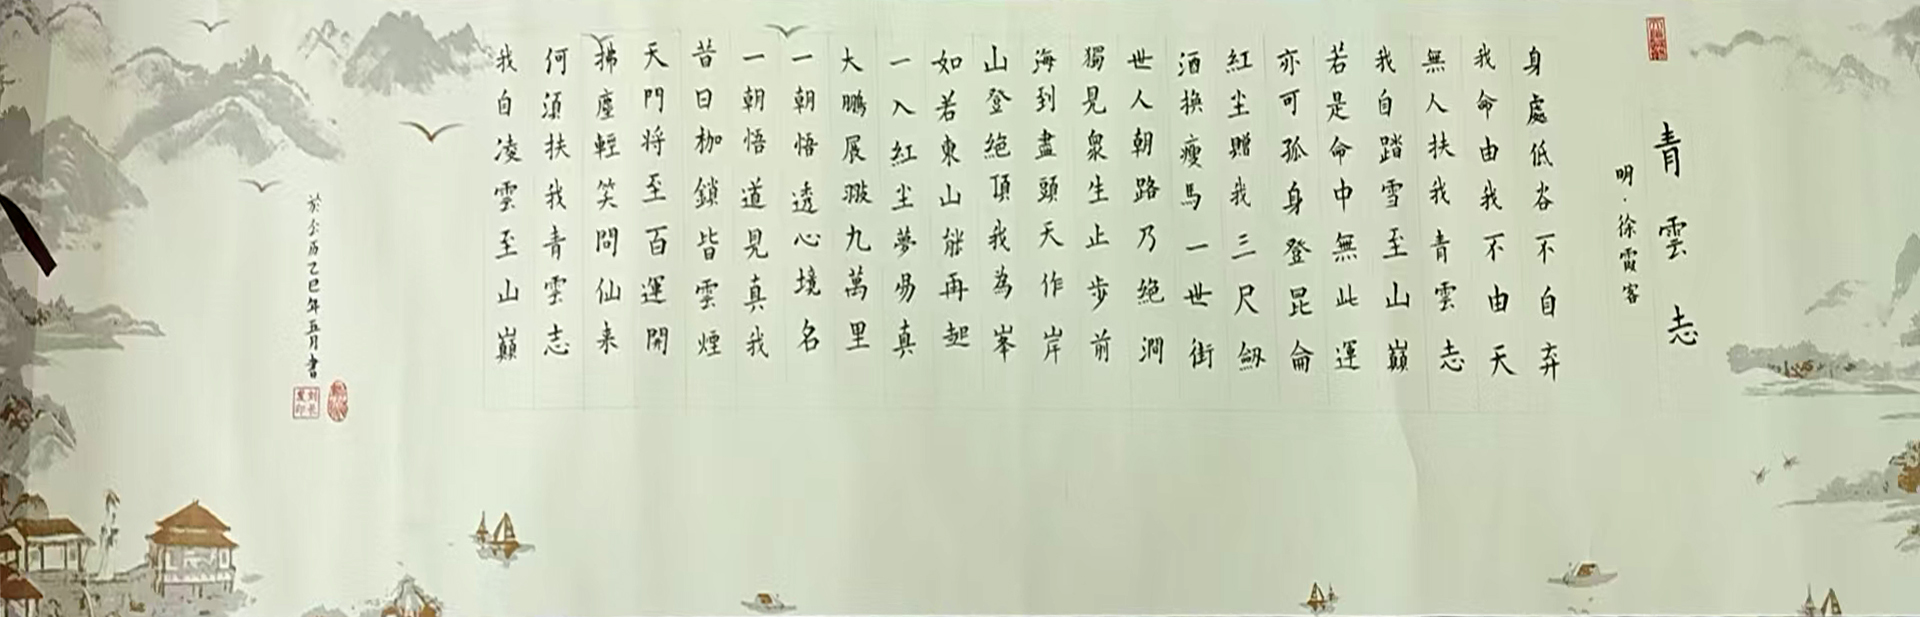 青雲志
明·徐霞客
身處低谷不自弃
我命由我不由天
無人扶我青雲志
我自踏雪至山巔
若是命中無此運
亦可孤身登昆侖
紅尘贈我三尺劔
酒換瘦馬一世街
世人朝路乃絶澗
獨見衆生止步前
海到盡頭天作岸
山登絶頂我為峯
如若東山能再起
一入紅尘夢易真
大鵬展翅九萬里
一朝悟透心境名
一朝悟道見真我
昔日枷鎖皆雲煙
天門将至百運開
拂塵輕笑問仙来
何須扶我青雲志
我自凌雲至山巔
於公历乙巳年五月書